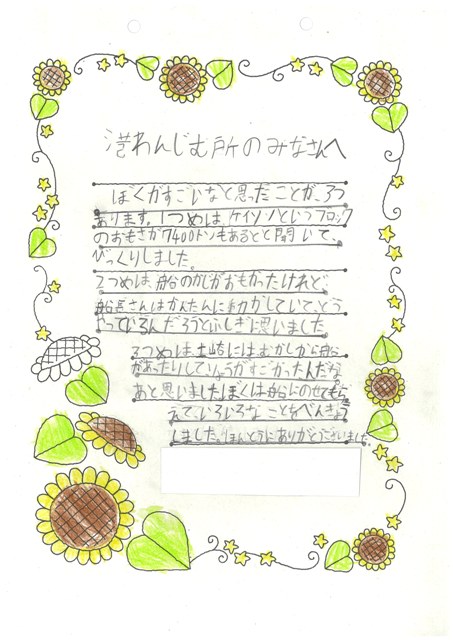 港わんじむ所のみなさんへ
ぼくがすごいなと思ったことが、3つ
あります。1つめは、ケイソンというブロック
のおもさが7400トンもあると聞いて、
びっくりしました。
2つめは、船のかじがおもかったけれど、
船長さんはかんたんに動かしていて、どう
やっているんだろうとふしぎに思いました。
3つめは、土崎にはむかしから船
があったりしていて
すごかったんだな
あと思いました。ぼくは船にのせてもら
えて、いろいろなことをべんきょう
しました。ほんとうにありがとうございました。